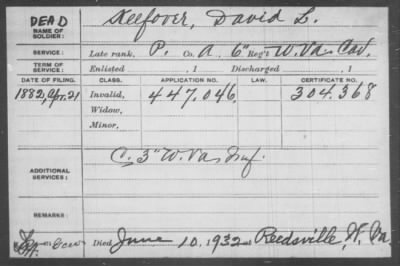 DEAD
NAME OF SOLDIER: Keefover, David L.
SERVICE: Late rank, P. Co. A, 6" Reg't W. Va. Cav.
TERM OF SERVICE: Enlisted , 1 Discharged , 1
DATE OF FILING. CLASS. APPLICATION NO. LAW. CERTIFICATE NO.
1882, Apr. 21 Invalid, 447.046 304.368
Widow,
Minor,
ADDITIONAL SERVICES: C. 3" W. Va. Inf.
REMARKS:
Died June 10, 1932 at Reedsville, W. Va.